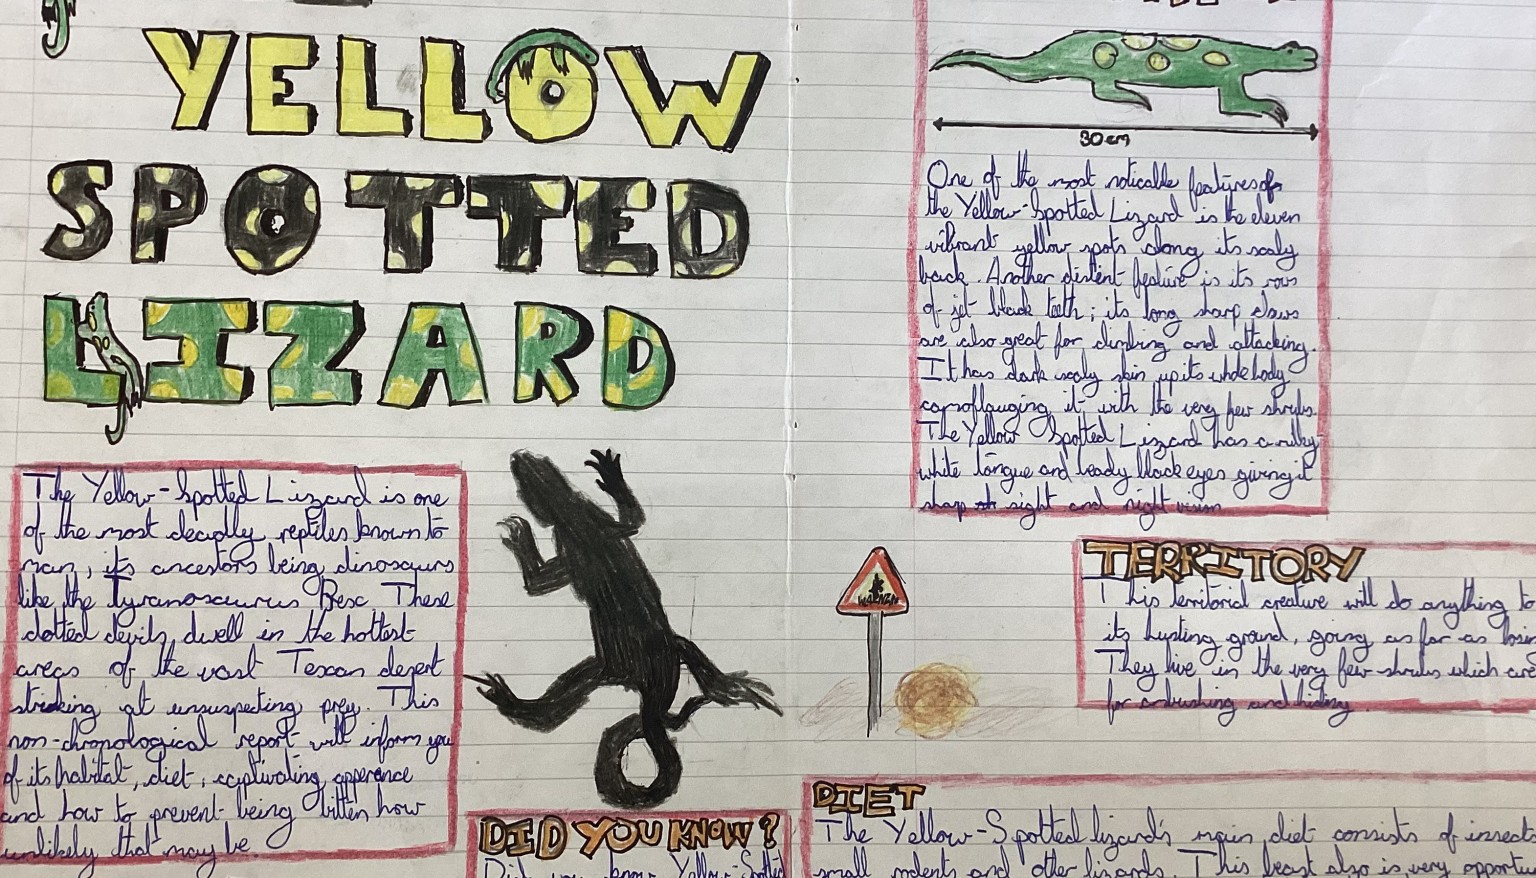 YELLOW
SPOTTED
LIZARD
The Yellow-Spotted Lizard is one
of the most deadly reptiles known to
man, its ancestors being dinosaurs
like the Tyranosaurus Rex. These
dotted devils, dwell in the hottest
areas of the vast Texan desert
striking at unsuspecting prey. This
non-chronological report will inform you
of its habitat, diet, captivating, apperance
and how to prevent being bitten how
unlikely that may be.
DID YOU KNOW?
Did you know Yellow-Spotted
30cm
One of the most noticable features of
the Yellow-Spotted Lizard is the eleven
vibrant yellow spots along its scaly
back. Another distent feature is its rows
of jet black teeth; its long sharp claws
are also great for climbing and attacking.
It has dark scaly skin up its whole body
camoflauging it with the very few shrubs.
The Yellow Spotted Lizard has a milky
white tongue and beady black eyes giving it
sharp sight and night vision
WARNING
TERRITORY
This territorial creature will do anything to
its hunting ground, going as far as
They live in the very few shrubs which are
for ambushing and hiding.
DIET
The Yellow-Spotted lizard's main diet consists of insects
small rodents and other lizards. This beast also is very